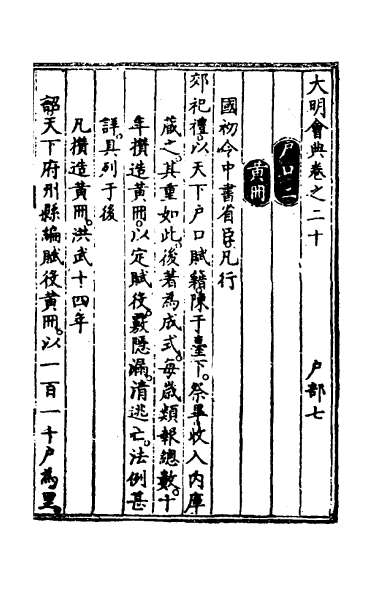 大明會典卷之二十 戶部七
戶口二
黃冊
國初令中書省臣凡行
郊祀禮以天下戶口賦籍陳于臺下祭畢收入內庫
藏之其重如此後著為成式每歲類報總數十
年攢造黃冊以定賦役覈隱漏清逃亡法例甚
詳具列于後
凡攢造黃冊洪武十四年
詔天下府州縣編賦役黃冊以一百一十戶為里